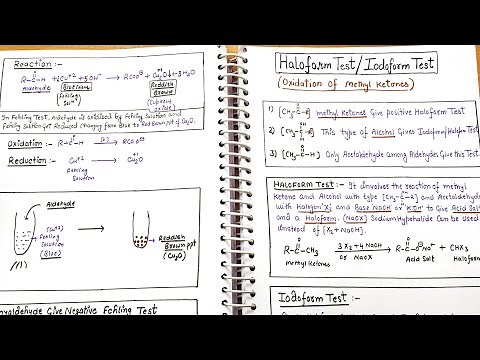 Reaction :-
R-C-H + 2Cu+2 + 5OH⁻ → RCOO⁻ + Cu2O↓ + 3H2O
O
Aldehyde
Blue
Fehling Solⁿ
Reddish Brown
(Cuprous oxide)
In Fehling Test, Aldehyde is oxidized by Fehling Solution and
Fehling Solution get Reduced changing from Blue to Red Brown ppt of Cu2O.
Oxidation :- R-C-H → RCOO⁻
O
Reduction :- Cu+2 → Cu2O
Fehling Solution
Aldehyde
(Cu+2)
Fehling
Solution
(Blue)
Reddish
Brown ppt
(Cu2O)
Give Negative Fehling Test
Haloform Test/Iodoform Test
(Oxidation of Methyl Ketones)
1) [CH3-C-R] methyl Ketones Give positive Haloform Test
O
2) [CH3-C-R] This type of Alcohol Gives Iodoform/Haloform Test
OH
3) [CH3-C-H] Only Acetaldehyde among Aldehydes Give this Test.
O
HALOFORM TEST :- It involves the reaction of methyl
Ketone and Alcohol with type [CH3-C-R] and Acetaldehyde
with Halogen 'X2' and Base NaOH or KOH to Give Acid Salt
and a Haloform. (NaOX) Sodium Hypohalide Can be used
Instead of [X2 + NaOH].
R-C-CH3 3X2 + 4NaOH or NaOX → R-C-O⁻Na⁺ + CHX3
O
O
methyl Ketones
Acid Salt
Haloform
Iodoform Test :-